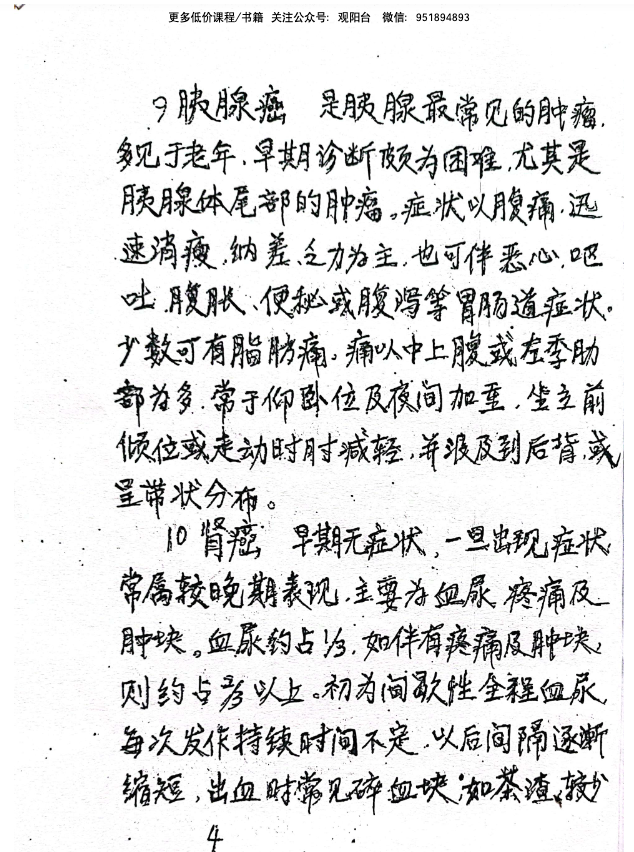 更多低价课程/书籍 关注公众号: 观阳台 微信: 951894893
9 胰腺癌 是胰腺最常见的肿瘤,
多见于老年,早期诊断颇为困难,尤其是
胰腺体尾部的肿瘤。症状以腹痛,迅
速消瘦,纳差、乏力为主,也可伴恶心,呕
吐,腹胀、便秘或腹泻等胃肠道症状。
少数可有脂肪痛,痛以中上腹或左季肋
部为多,常于仰卧位及夜间加重,坐立前
倾位或走动时时减轻,并波及到后背,或
呈带状分布。
10 肾癌 早期无症状,一旦出现症状
常属较晚期表现,主要为血尿,疼痛及
肿块。血尿约占1/3,如伴有疼痛及肿块,
则约占2/3以上。初为间歇性全程血尿,
每次发作持续时间不定,以后间隔逐渐
缩短,出血时常见碎血块,如茶渣,较少
4